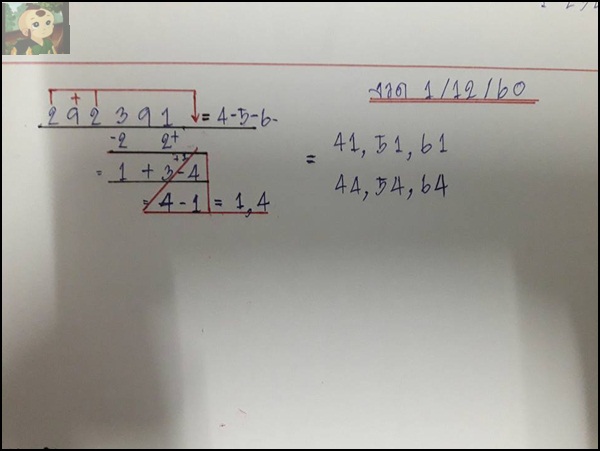 งวด 1/12/60
+
292391 = 4-5-6-
-2 2+
= 1 + 3-4
= 4-1 = 1,4
= 41, 51, 61
44, 54, 64